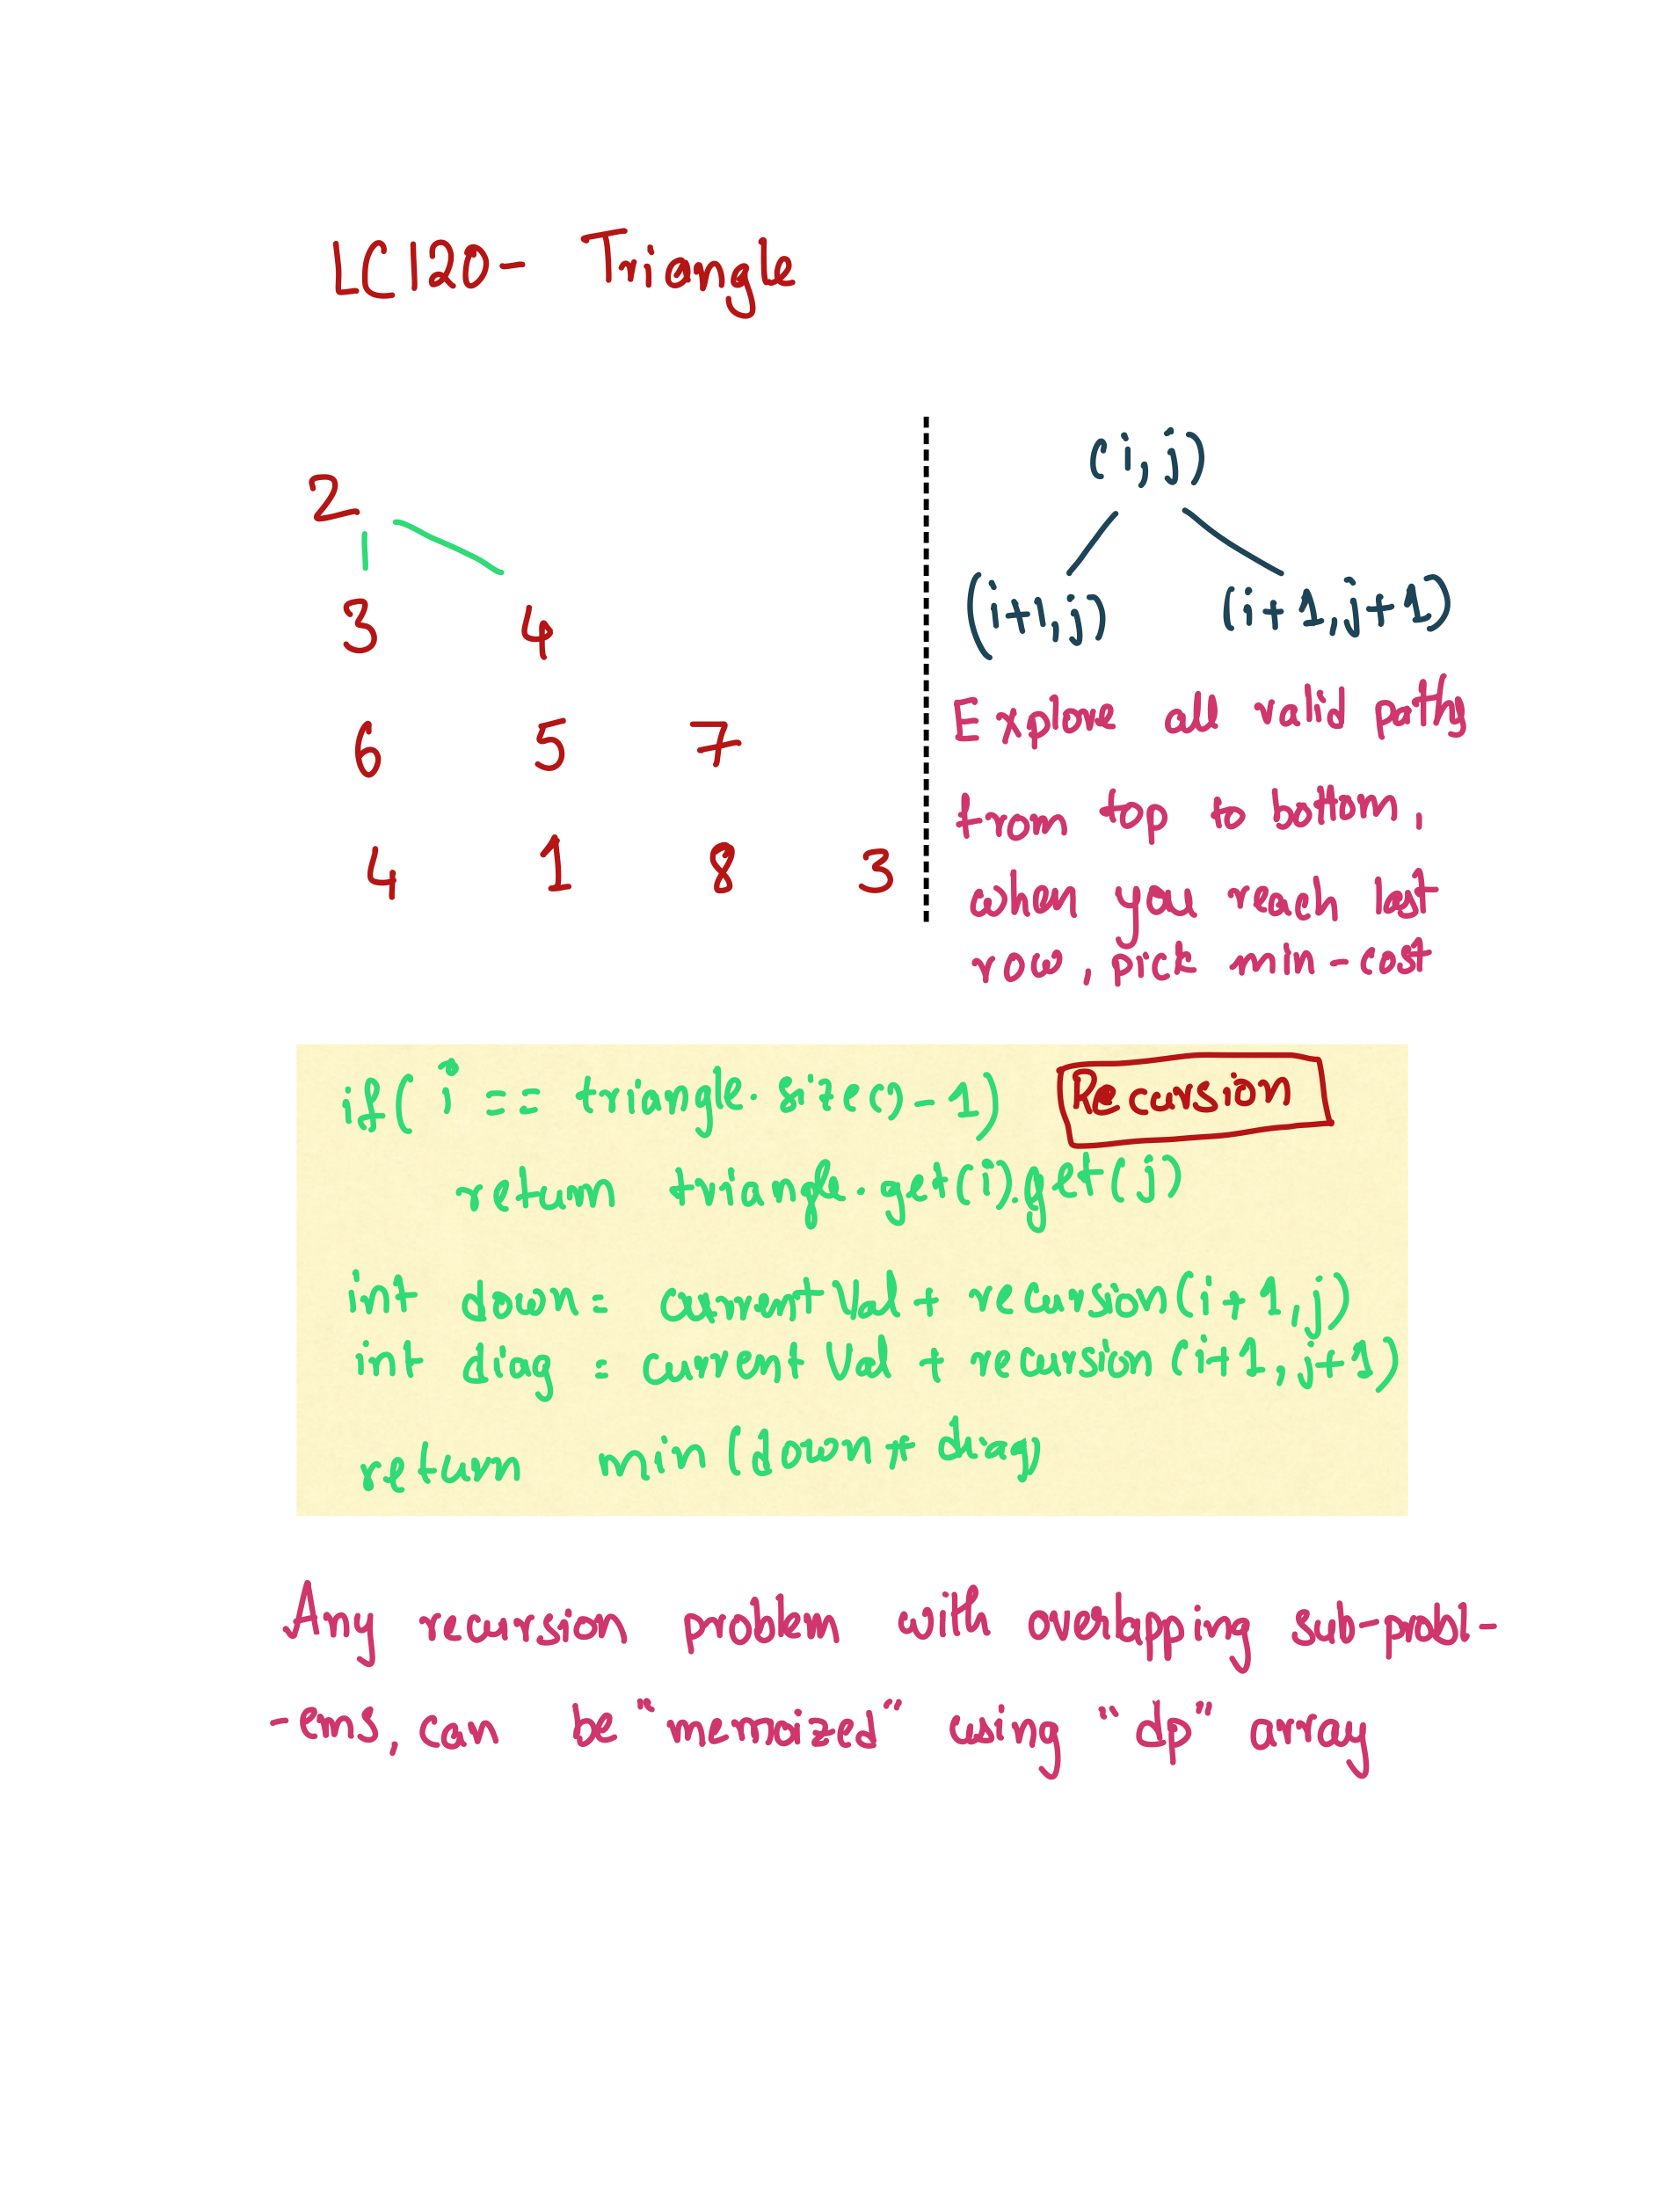 LC120- Triangle
2
3 4
6 5 7
4 1 8 3
(i,j)
(i+1,j) (i+1,j+1)
Explore all valid paths
from top to bottom,
when you reach last
row, pick min-cost
if( i == triangle.size()-1) Recursion
return triangle.get(i).get(j)
int down= currentVal + recursion(i+1,j)
int diag = currentVal + recursion(i+1,j+1)
return min(down + diag)
Any recursion problem with overlapping sub-probl-
-ems, can be "memoized" using "dp" array